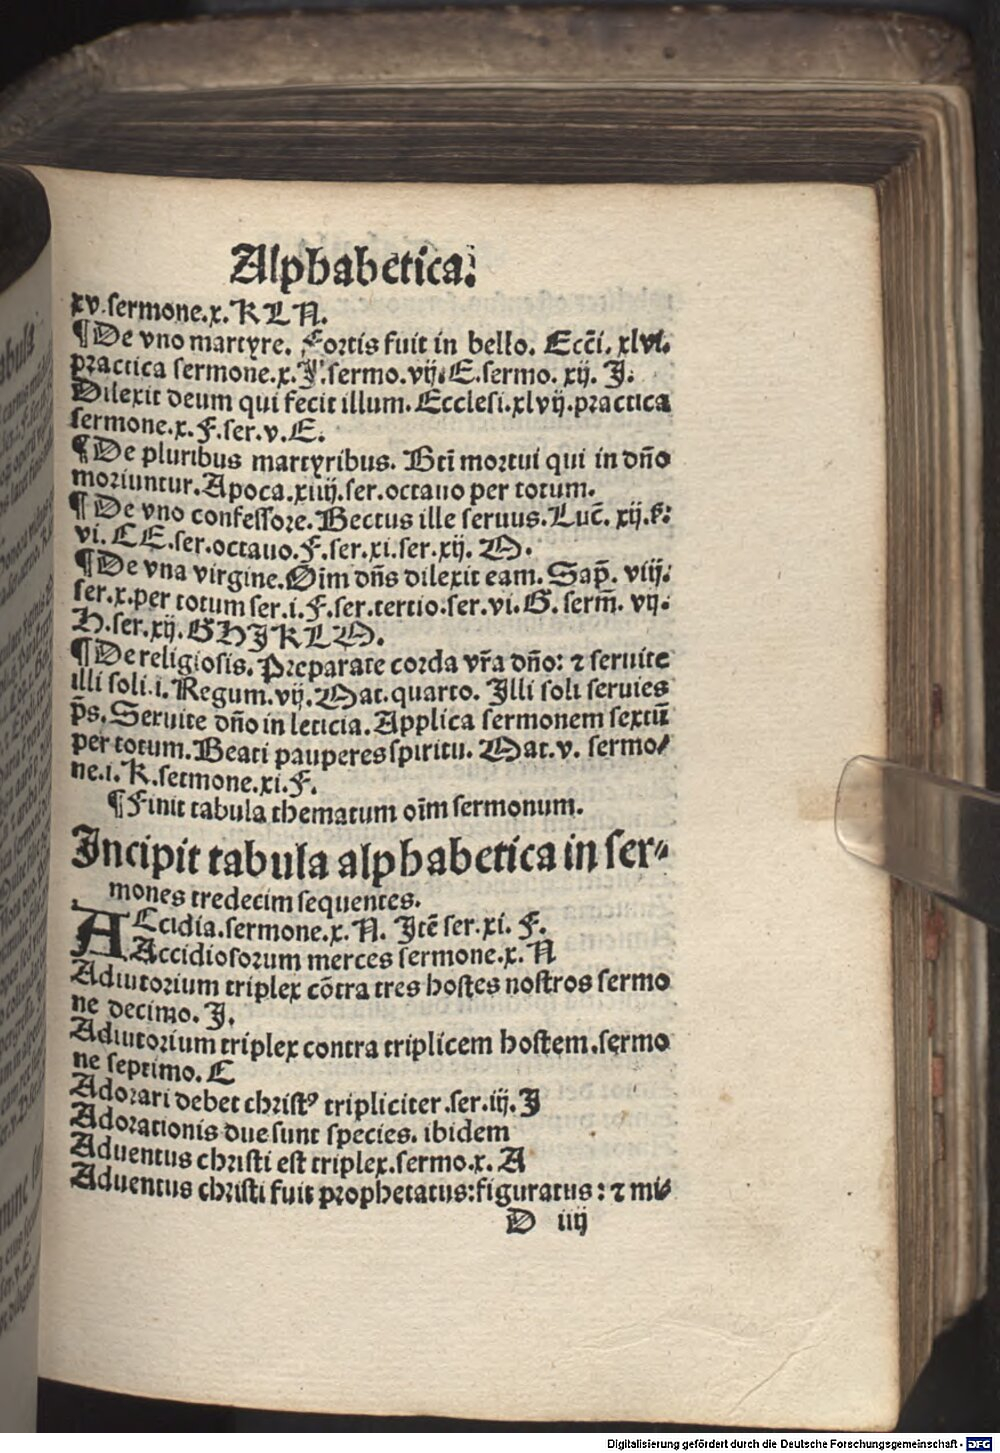 Alphabetica.
xv.sermone.x.K L N.
¶ De vno martyre. Fortis fuit in bello. Ecci̅. xlvi.
practica sermone.x.I.sermo.vij.E.sermo. xij. I.
Dilexit deum qui fecit illum.Ecclesi.xlvij.practica
sermone.x.F.ser.v.E.
¶ De pluribus martyribus. Bti̅ mortui qui in dn̅o
moriuntur.Apoca.xiiij.ser.octauo per totum.
¶ De vno confessore.Beatus ille seruus.Luc̅. xij.s:
vi. C E.ser.octauo.F.ser.xi.ser.xij. M.
¶ De vna virgine.Oi̅m dn̅s dilexit eam.Sap̅. viij.
ser.x.per totum ser.i.F.ser.tertio.ser.vi.G. serm̅. vij.
H.ser.xij.G H I K L M.
¶ De religiosis. Preparate corda vr̅a dn̅o: ⁊ seruite
illi soli.i.Regum.vij.Mat.quarto. Illi soli seruies
ps.Seruite dn̅o in leticia.Applica sermonem sextu̅
per totum.Beati pauperes spiritu. Mat.v. sermo/
ne.i.K.setmone.xi.F.
¶ Finit tabula thematum oi̅m sermonum.
Incipit tabula alphabetica in ser⸗
mones tredecim sequentes.
ACcidia.sermone.x.N. Ite̅ ser.xi. F.
Accidiosorum merces sermone.x. N
Adiutorium triplex co̅tra tres hostes nostros sermo
ne decimo. I.
Adiutorium triplex contra triplicem hostem.sermo
ne septimo. E
Adorari debet christꝰ tripliciter.ser.iij.I
Adorationis due sunt species. ibidem
Aduentus christi est triplex.sermo.x. A
Aduentus christi fuit prophetatus:figuratus: ⁊ mi/
D iiij
Digitalisierung gefördert durch die Deutsche Forschungsgemeinschaft - DFG